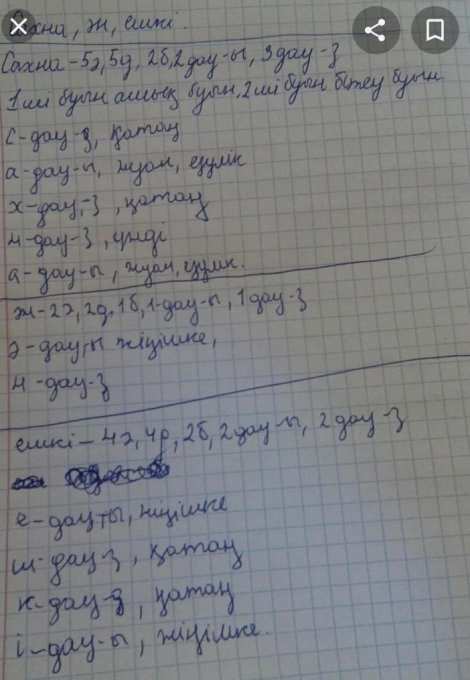 Сахна, ән, ешкі.
Сахна - 5ә, 5д, 2б, 2 дау-ы, 3 дау-з
1 ші буын ашық буын, 2 ші буын бітеу буын
С - дау-з, қатаң
а - дау-ы, жуан, езулік
х - дау-з, қатаң
н - дау-з, үнді
а - дау-ы, жуан, езулік.
ән - 2ә, 2д, 1б, 1-дау-ы, 1 дау-з
ә - дау-ы жіңішке,
н - дау-з
ешкі - 4ә, 4д, 2б, 2 дау-ы, 2 дау-з
е - дау-ты, жіңішке
ш - дау-з, қатаң
к - дау-з, қатаң
і - дау-ы, жіңішке.